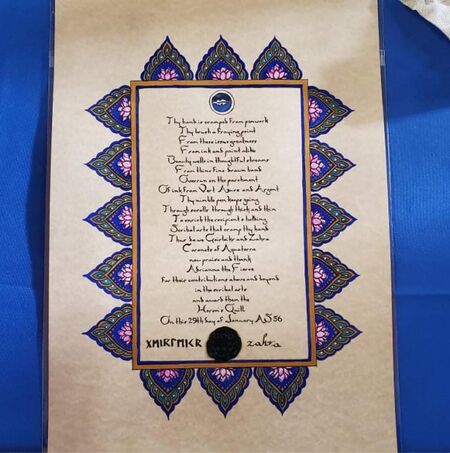 Thy hand is cramped from penwork
Thy brush a fraying point
From these issue greatness
From ink and paint alike
Beauty wells in thoughtful streams
From thine fine
Overrun on the parchment
Of ink from Vert Azure and Argent
Thy nimble pen keeps going
Through scrolls through thick and thin
To enrich the recipients
Scribal arts that cramp thy hand
Thus do we Geirleikr and Zahra
Coronets of Aquaterra
now praise and thank
Adrianna the Fierce
For their contributions above and beyond
in the scribal arts
and award them the
Heron's Quill
On this 29th day of January AS 56
zahra